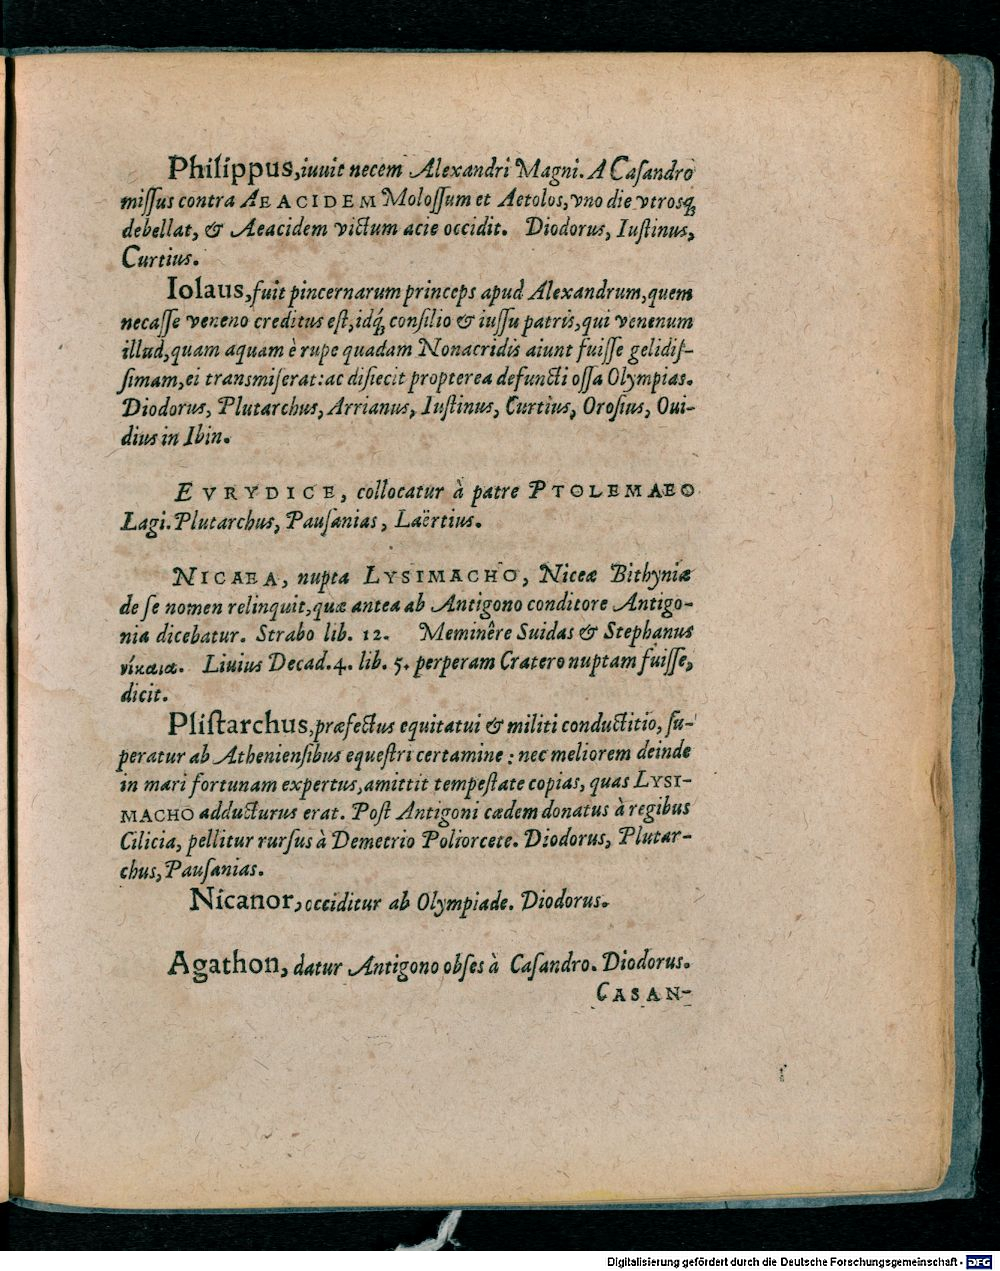 Philippus, iuuit necem Alexandri Magni. A Casandro
missus contra AEACIDEM Molossum et Aetolos, vno die vtrosq́;
debellat, & Aeacidem victum acie occidit. Diodorus, Iustinus,
Curtius.
Iolaus, fuit pincernarum princeps apud Alexandrum, quem
necasse veneno creditus est, idq́; consilio & iussu patris, qui venenum
illud, quam aquam è rupe quadam Nonacridis aiunt fuisse gelidis-
simam, ei transmiserat: ac disiecit propterea defuncti ossa Olympias.
Diodorus, Plutarchus, Arrianus, Iustinus, Curtius, Orosius, Oui-
dius in Ibin.
EVRYDICE, collocatur à patre PTOLEMAEO
Lagi. Plutarchus, Pausanias, Laërtius.
NICAEA, nupta LYSIMACHO, Niceæ Bithyniæ
de se nomen relinquit, quæ antea ab Antigono conditore Antigo-
nia dicebatur. Strabo lib. 12. Meminêre Suidas & Stephanus
νίκαια. Liuius Decad. 4. lib. 5. perperam Cratero nuptam fuisse,
dicit.
Plistarchus, præfectus equitatui & militi conductitio, su-
peratur ab Atheniensibus equestri certamine: nec meliorem deinde
in mari fortunam expertus, amittit tempestate copias, quas LYSI-
MACHO adducturus erat. Post Antigoni cædem donatus à regibus
Cilicia, pellitur rursus à Demetrio Poliorcete. Diodorus, Plutar-
chus, Pausanias.
Nicanor, occiditur ab Olympiade. Diodorus.
Agathon, datur Antigono obses à Casandro. Diodorus.
CASAN-
Digitalisierung gefördert durch die Deutsche Forschungsgemeinschaft - DFG